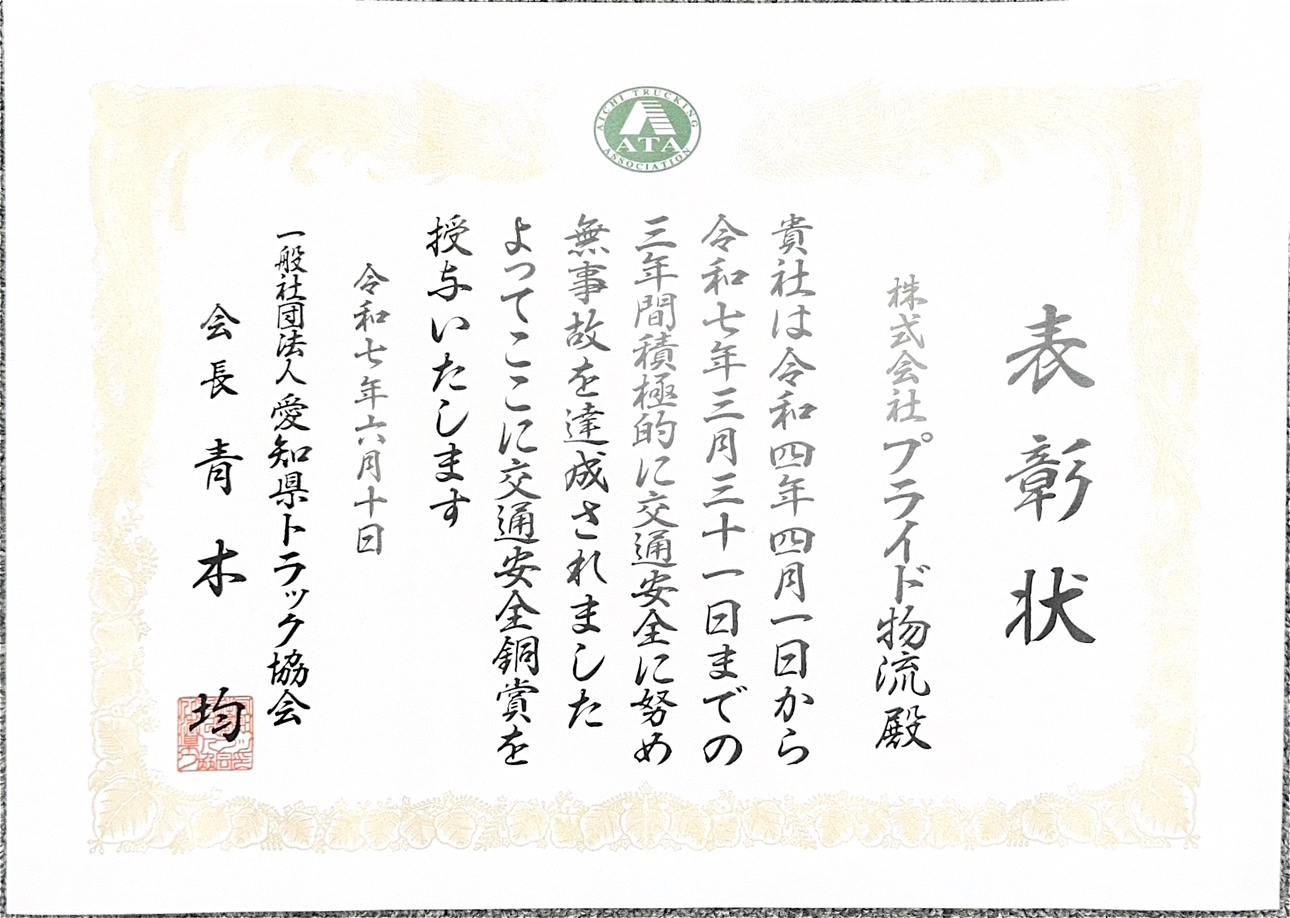 AICHI TRUCKING
ATA
ASSOCIATION
表彰状
株式会社プライド物流殿
貴社は令和四年四月一日から
令和七年三月三十一日までの
三年間積極的に交通安全に努め
無事故を達成されました
よってここに交通安全銅賞を
授与いたします
令和七年六月十日
一般社団法人愛知県トラック協会
会長 青木 均